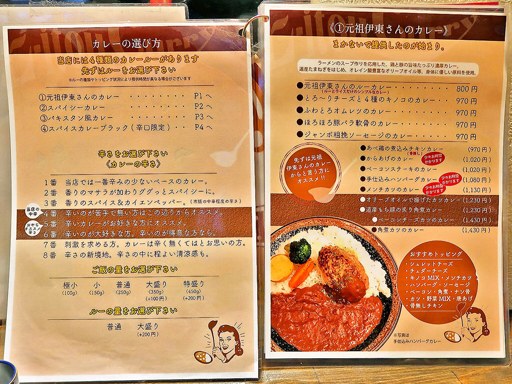 カレーの選び方
当店には4種類のカレールーがあります
先ずはルーをお選び下さい
①元祖伊東さんのカレー ・・・・・ P1へ
②スパイシーカレー ・・・・・ P2へ
③パキスタン風カレー ・・・・・ P3へ
④スパイスカレーブラック(辛口限定) ・・ P4へ
辛さをお選び下さい
《カレーの辛さ》
1番 当店では一番辛みの少ないベースのカレー。
2番 香りのマサラが加わりググっとスパイシーに。
3番 香りのスパイス&カイエンペッパー。
4番 辛いのが苦手で無い方はこの辺りからオススメ。
5番 辛いカレーがお好きな方にオススメ。
6番 辛いのが大好きな方、辛いのが得意な方なら。
7番 刺激を求める方。カレーは辛く無くてはとお思いの方。
8番 辛さの新境地。辛さの中に程よい清涼感も。
ご飯の量をお選び下さい
極小 小 普通 大盛り 特盛り
(100g) (150g) (250g) (350g) (450g)
+100円 +200円
ルーの量をお選び下さい
普通 大盛り
+200円
《①元祖伊東さんのカレー》
まかないで提供したのが始まり。
ラーメンのスープ作りを応用した、鶏と豚の旨味たっぷり濃厚カレー。
①元祖伊東さんのルーカレー ・・・・・ 800円
●とろ〜りチーズと4種のキノコのカレー ・・・ 970円
●ふわとろオムレツのカレー ・・・・・ 970円
●ほろほろ豚バラ軟骨のカレー ・・・・ 970円
●ジャンボ粗挽ソーセージのカレー ・・・ 970円
先ずは元祖
伊東さんのカレー
からと思う方に
オススメ!!
●あべ鶏の煮込みチキンカレー (970円)
●からあげのカレー (1,020円)
●ベーコンステーキのカレー (1,020円)
●手仕込みハンバーグカレー (1,080円)
●メンチカツのカレー (1,130円)
●オリーブオイルで揚げたカツカレー (1,230円)
●道産もち豚の炙り角煮カレー (1,230円)
●ハムチーズカツのカレー (1,410円)
●角煮カツカレー (1,430円)
おすすめトッピング
・シュレッドチーズ
・チェダーチーズ
・キノコMIX・メンチカツ
・ハンバーグ・ソーセージ
・ベーコン・角煮・チキン
・カツ・野菜MIX・唐あげ
・骨無しチキン
※写真は
手仕込みハンバーグカレー